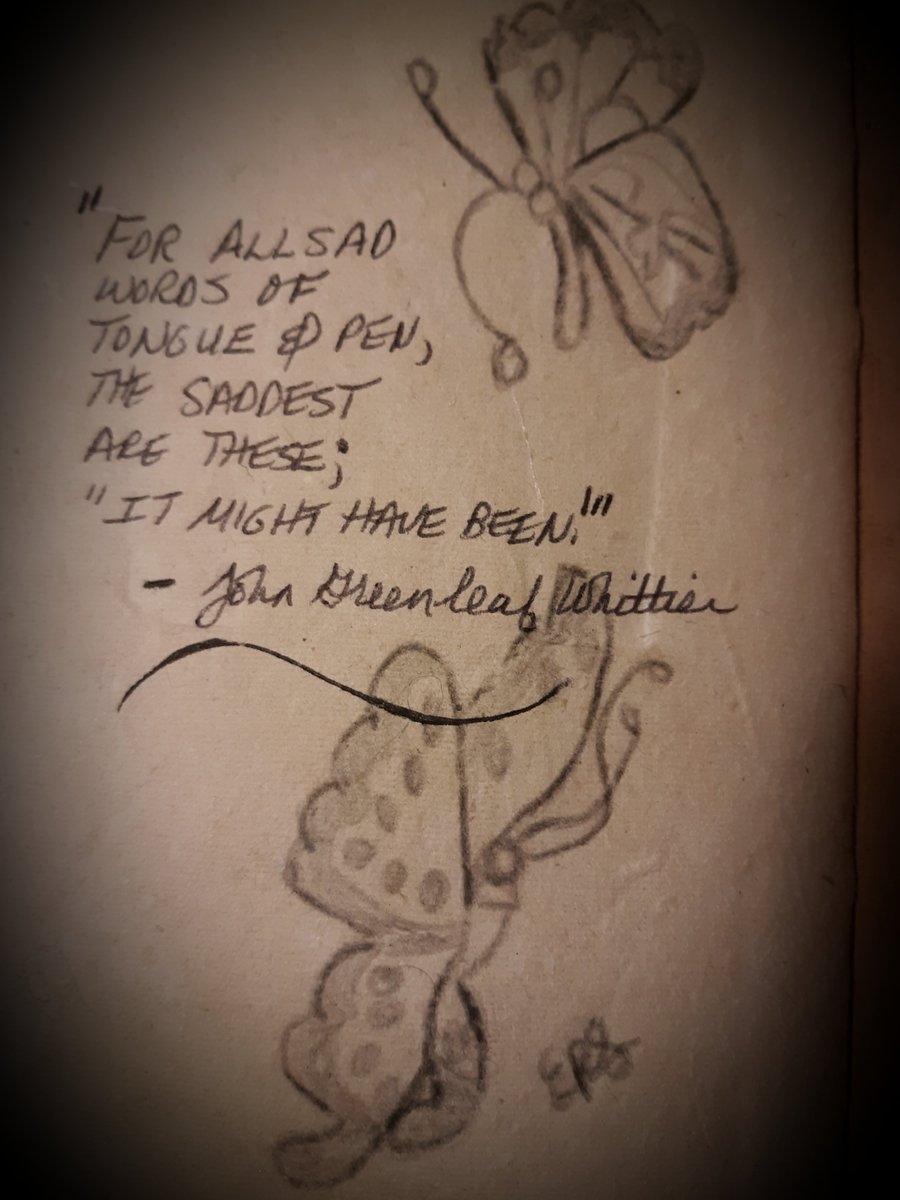 "FOR ALL SAD
WORDS OF
TONGUE & PEN,
THE SADDEST
ARE THESE;
"IT MIGHT HAVE BEEN!""
- John Greenleaf Whittier